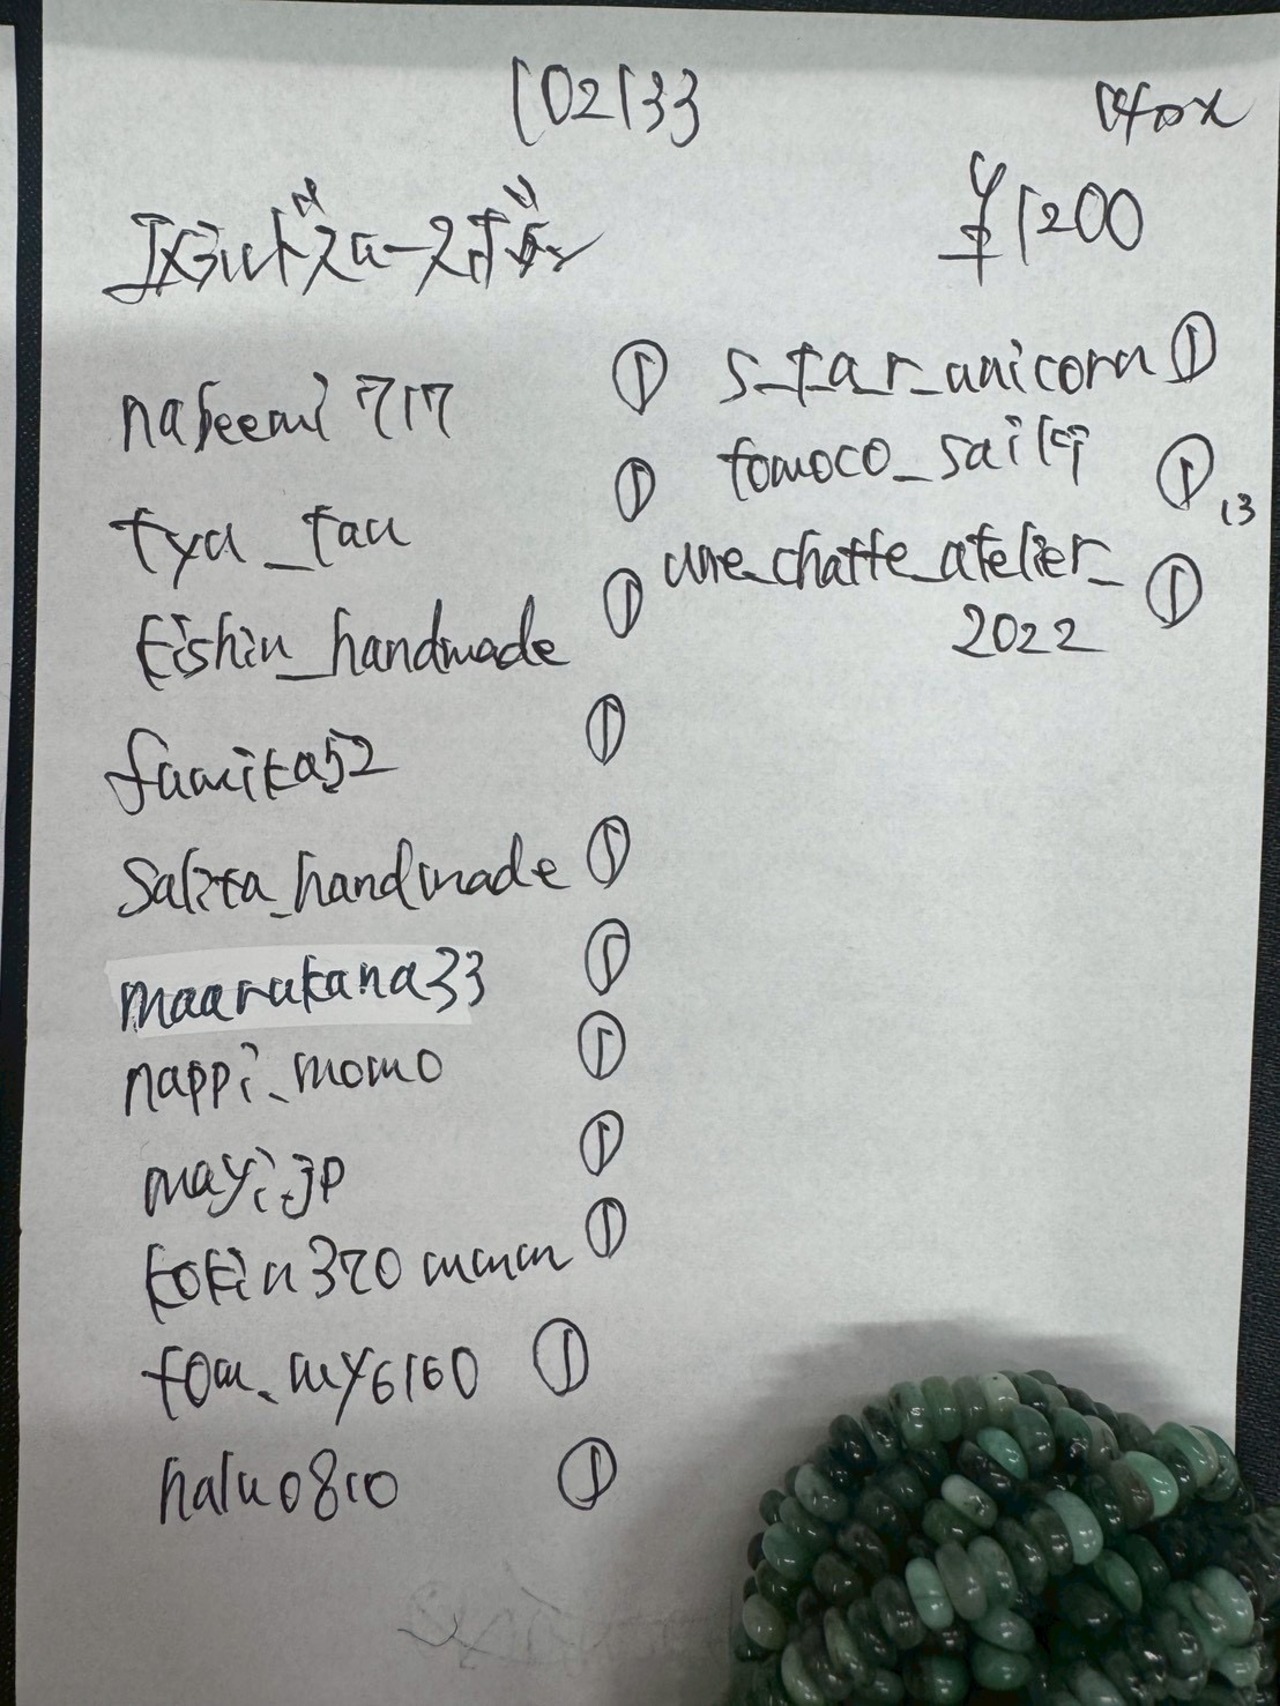 102133
14px
エメラルドスムースボタン
¥1200
nabeemi717 ①
tya_tau ①
kishin_handmade ①
fumika52 ①
Salita_handmade ①
maarukana33 ①
nappi_momo ①
mayi.jp ①
kokin320mmm ①
tom_my6160 ①
halu0810 ①
s_t_a_r_unicorn ①
tomoco_saiki ①
13
une_chatte_atelier_ ①
2022